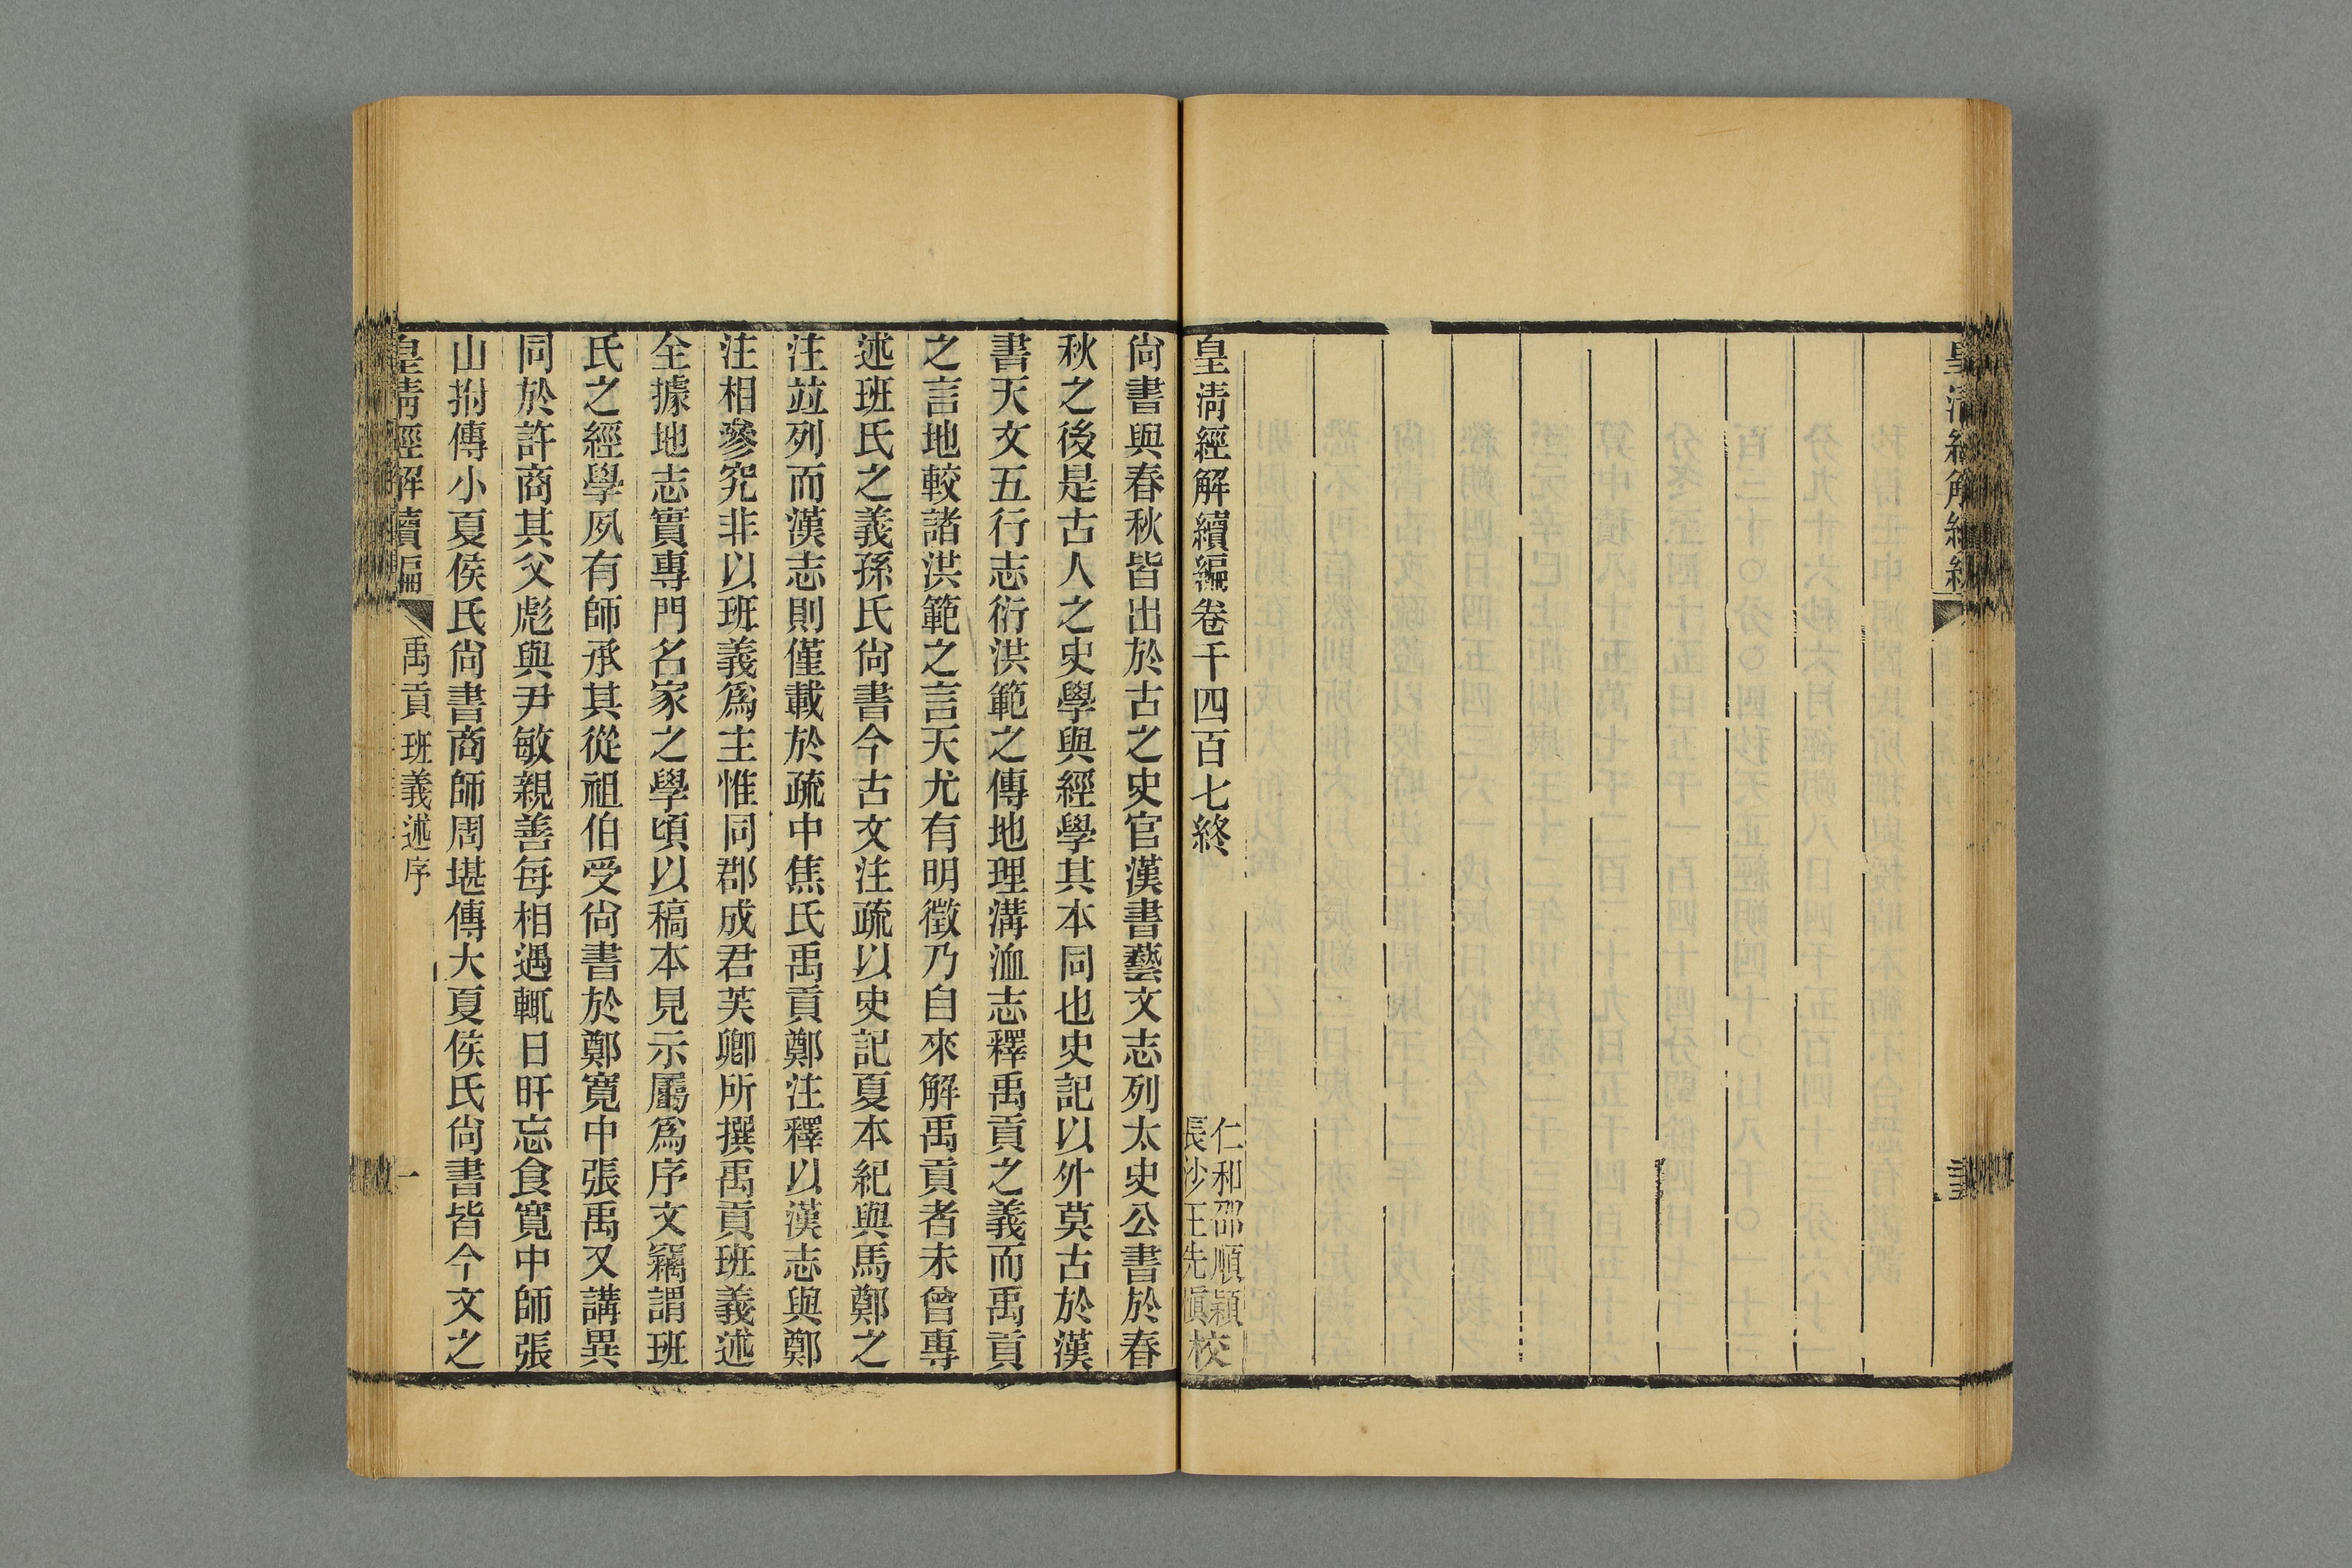 皇清經解續編卷千四百七終
仁和邵順穎
長沙王先愼校
尙書與春秋皆出於古之史官漢書藝文志列太史公書於春
秋之後是古人之史學與經學其本同也史記以外莫古於漢
書天文五行志衍洪範之傳地理溝洫志釋禹貢之義而禹貢
之言地較諸洪範之言天尤有明徵乃自來解禹貢者未曾專
述班氏之義孫氏尙書今古文注疏以史記夏本紀與馬鄭之
注竝列而漢志則僅載於疏中焦氏禹貢鄭注釋以漢志與鄭
注相參究非以班義爲主惟同郡成君芙卿所撰禹貢班義述
全據地志實專門名家之學頃以稿本見示屬爲序文竊謂班
氏之經學夙有師承其從祖伯受尙書於鄭寬中張禹又講異
同於許商其父彪與尹敏親善每相遇輒日旰忘食寬中師張
山拊傳小夏侯氏尙書商師周堪傳大夏侯氏尙書皆今文之
皇清經解續編
禹貢班義述序
一